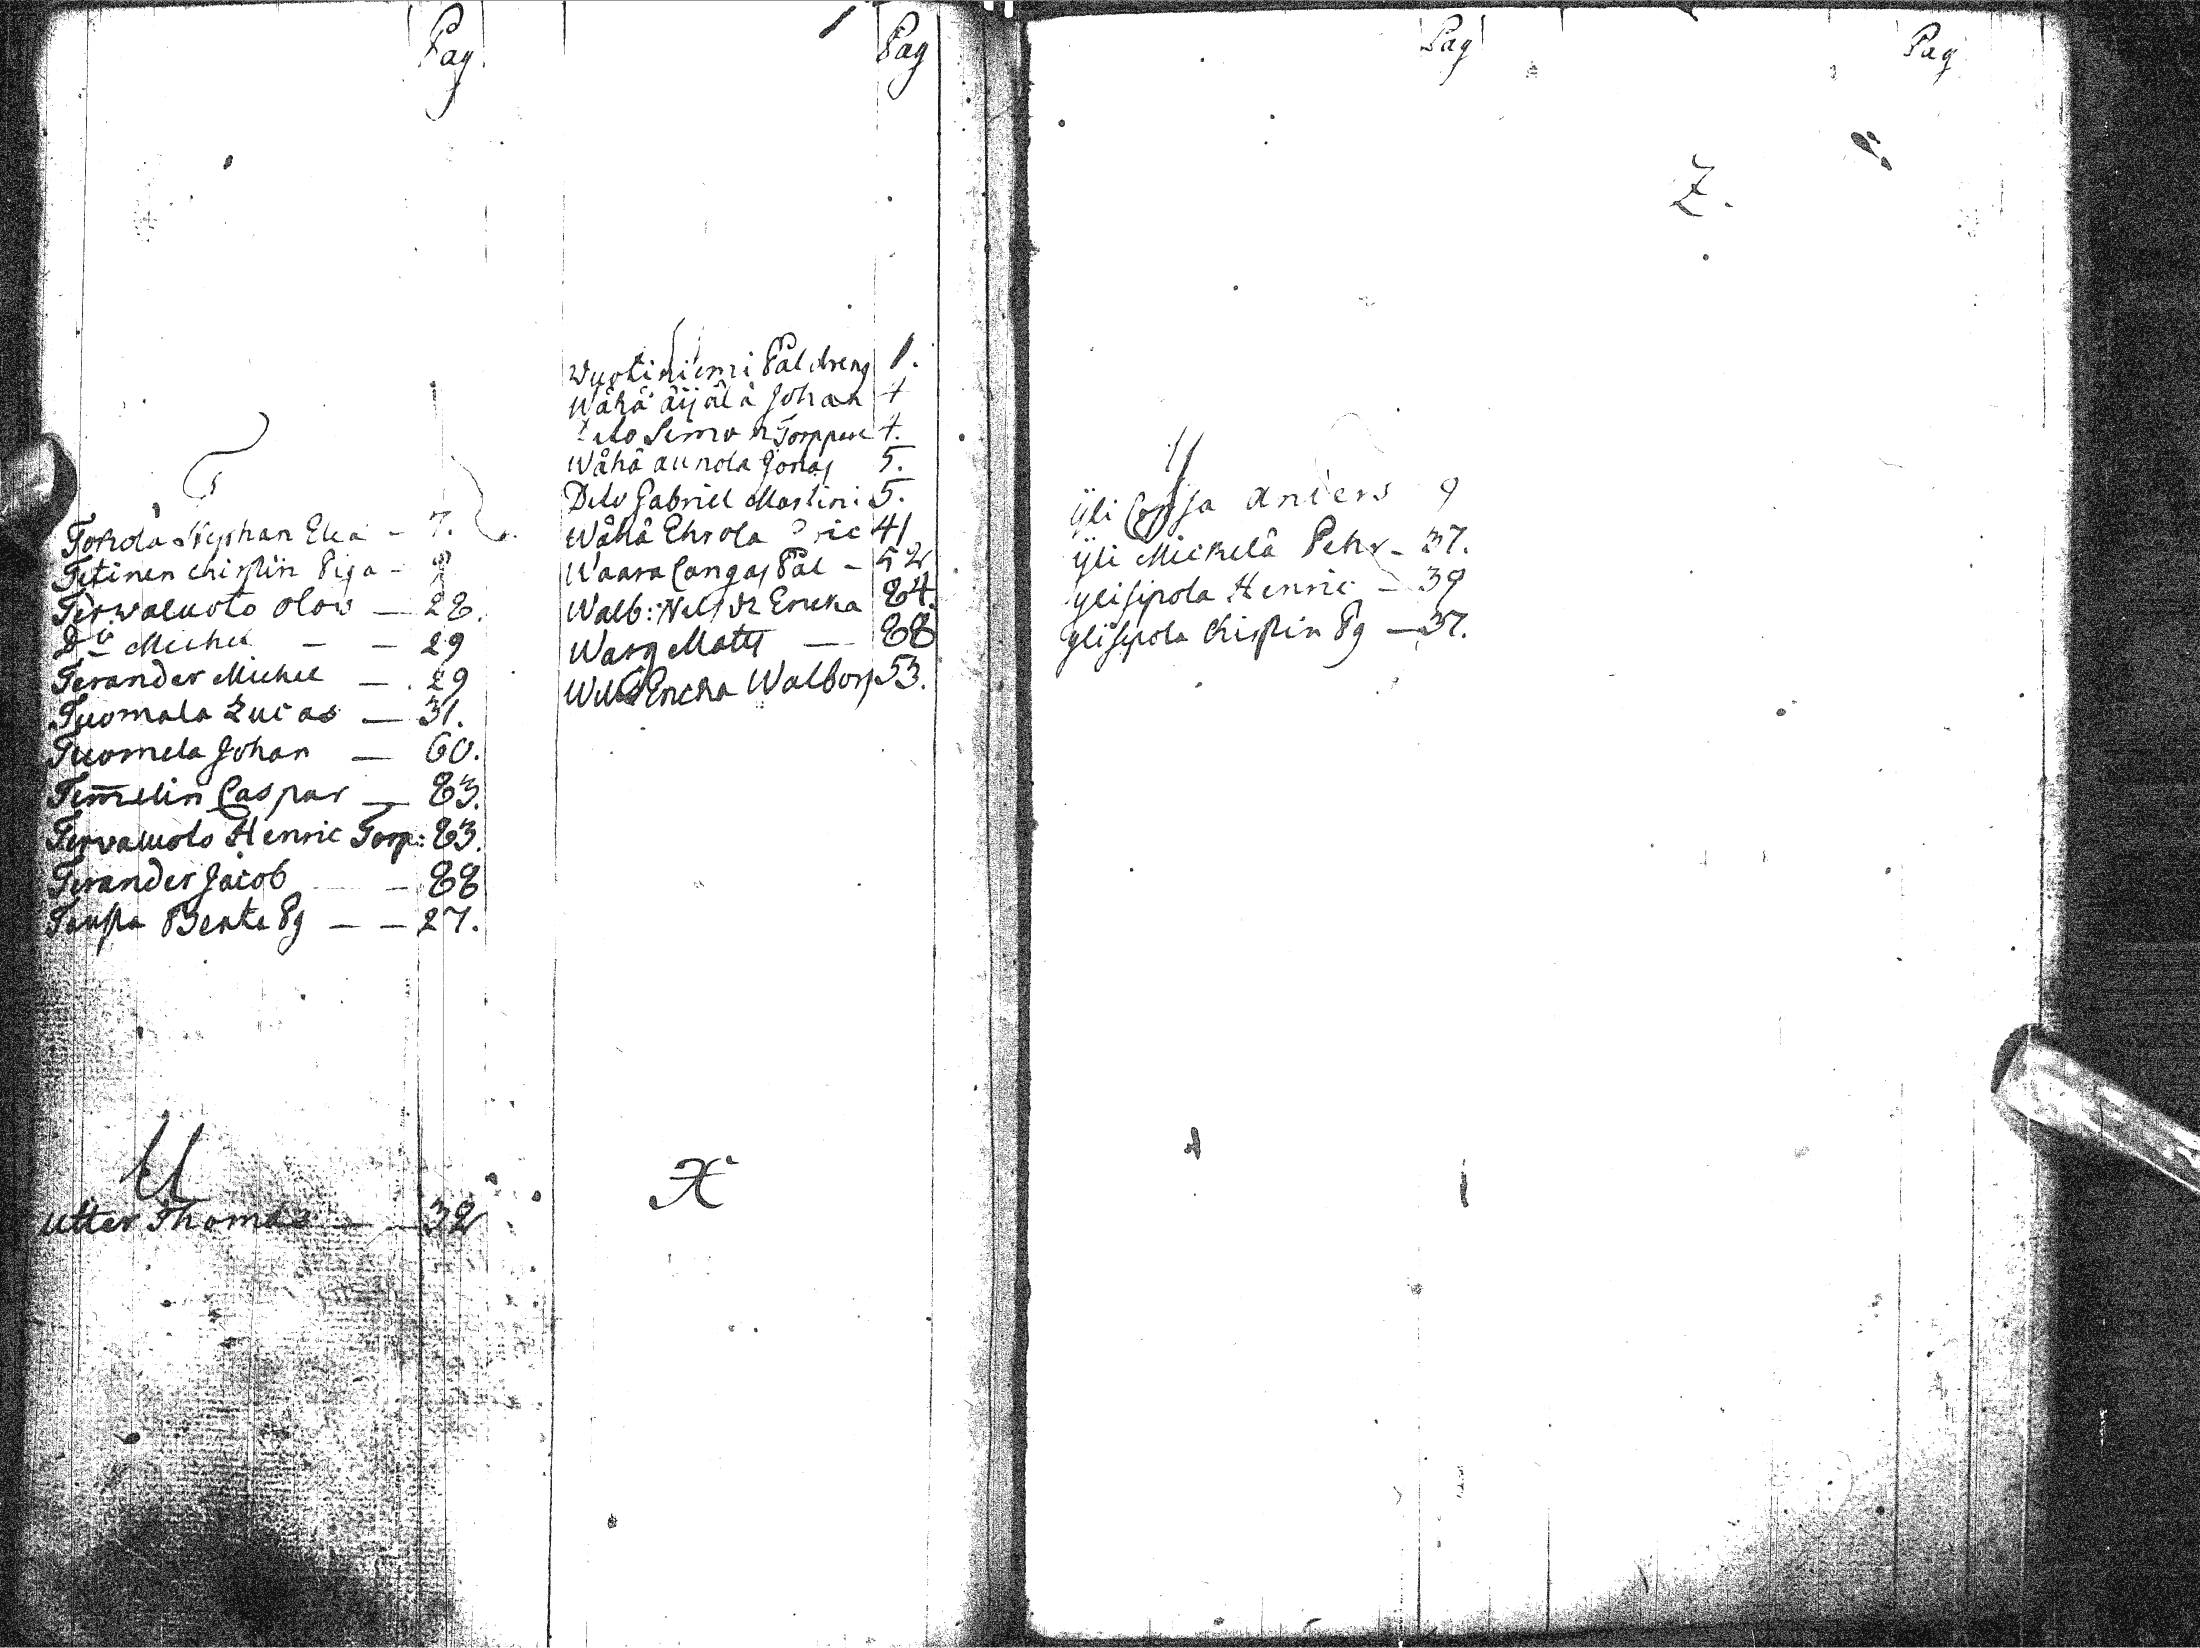 Pag
T
Tokola Stephan Elia - 7.
Tetinen Chirstin Piga - 9
Tervaluoto Olow — 28.
Do Michel - - 29
Terander Michel — 29
Tuomala Lucas — 31.
Tuomela Johan — 60.
Tem̅elin Caspar — 83.
Tervaluoto Henric Torp: 83.
Terander Jacob — 88
Beata Pg — — 27.
U
Utter Thomas — — 32
Pag
Wuotiniemi Pål dreng 1.
Wähä äijälä Johan 4
Dito Simon Torppare 4.
Wähä aunola Jonas 5.
Dito Gabriel Martini 5.
Wähä Ehrola Eric 41
Waara Cangas Pål - 52
Walb: Ericka 84.
Warg Matts — 88
Ericka Walborg 53.
X
Pag
Y
Yli Anders 9
Yli Mickelä Pehr - 37.
Ylisipola Henric - 39
Ylisipola Chirstin Pg — 37.
Pag
Z.